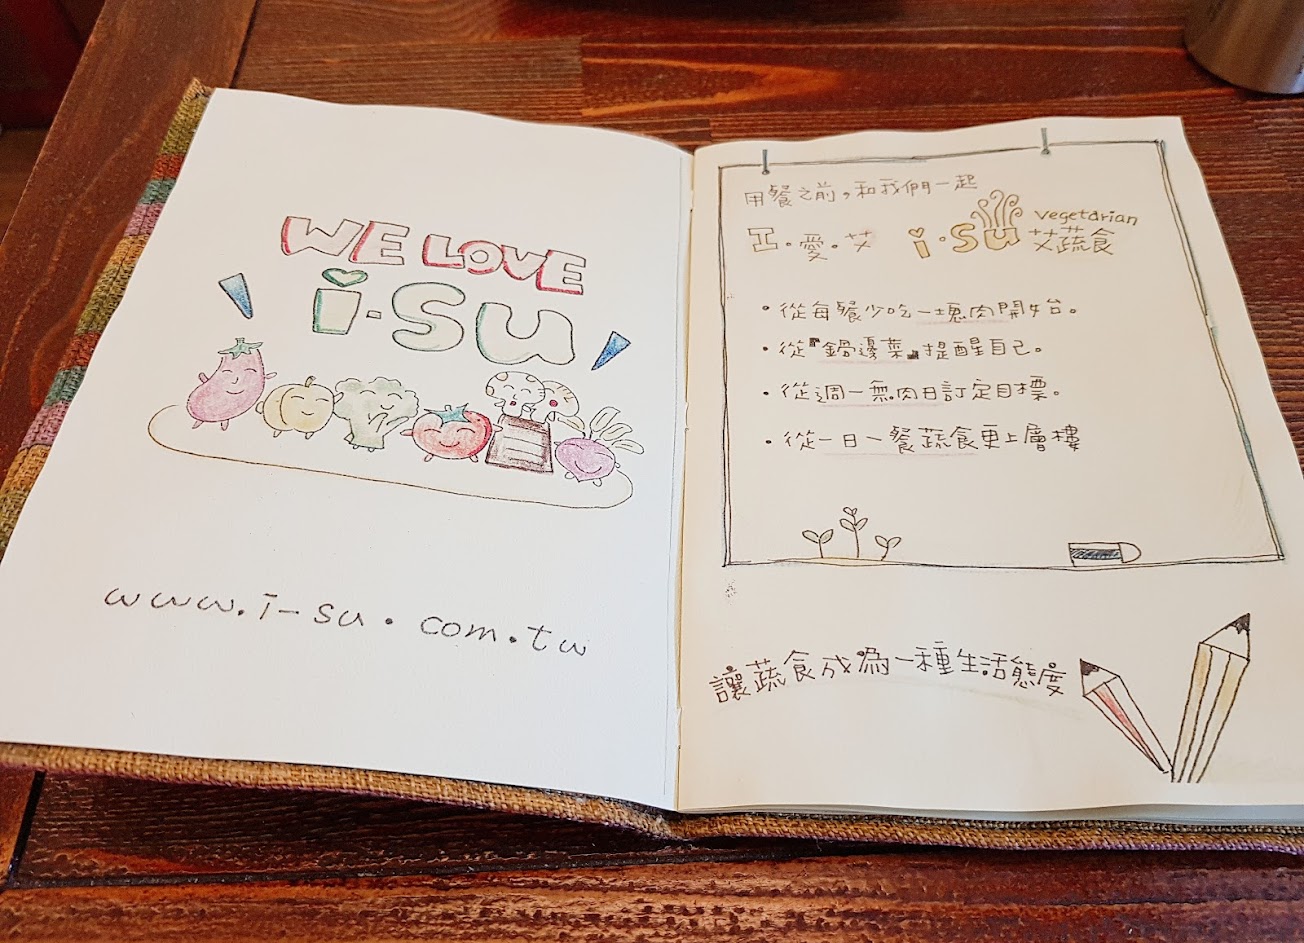 WE LOVE
i-Su
www.i-su.com.tw
用餐之前，和我們一起
工．愛．艾 i-Su vegetarian 艾蔬食
・從每餐少吃一塊肉開始。
・從『鍋邊菜』提醒自己。
・從週一無肉日訂定目標。
・從一日一餐蔬食更上層樓
讓蔬食成為一種生活態度